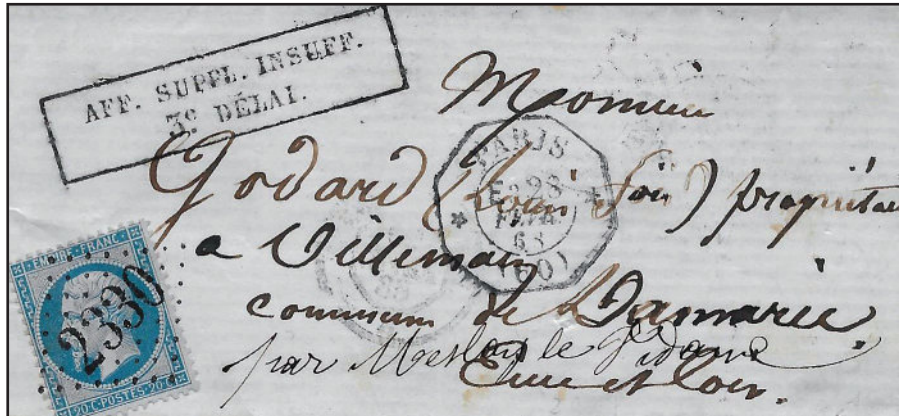 AFF. SUPPL. INSUFF.
3e DÉLAI.
Monsieur
Godard (Louis fois) propriétaire
a Villemain
commune de Damarie
par Meslay le Vidame
Eure et Loir.
PARIS
E
23
FEVR.
63
(60)
EMPIRE FRANC
2330
20 C. POSTES 20 C.